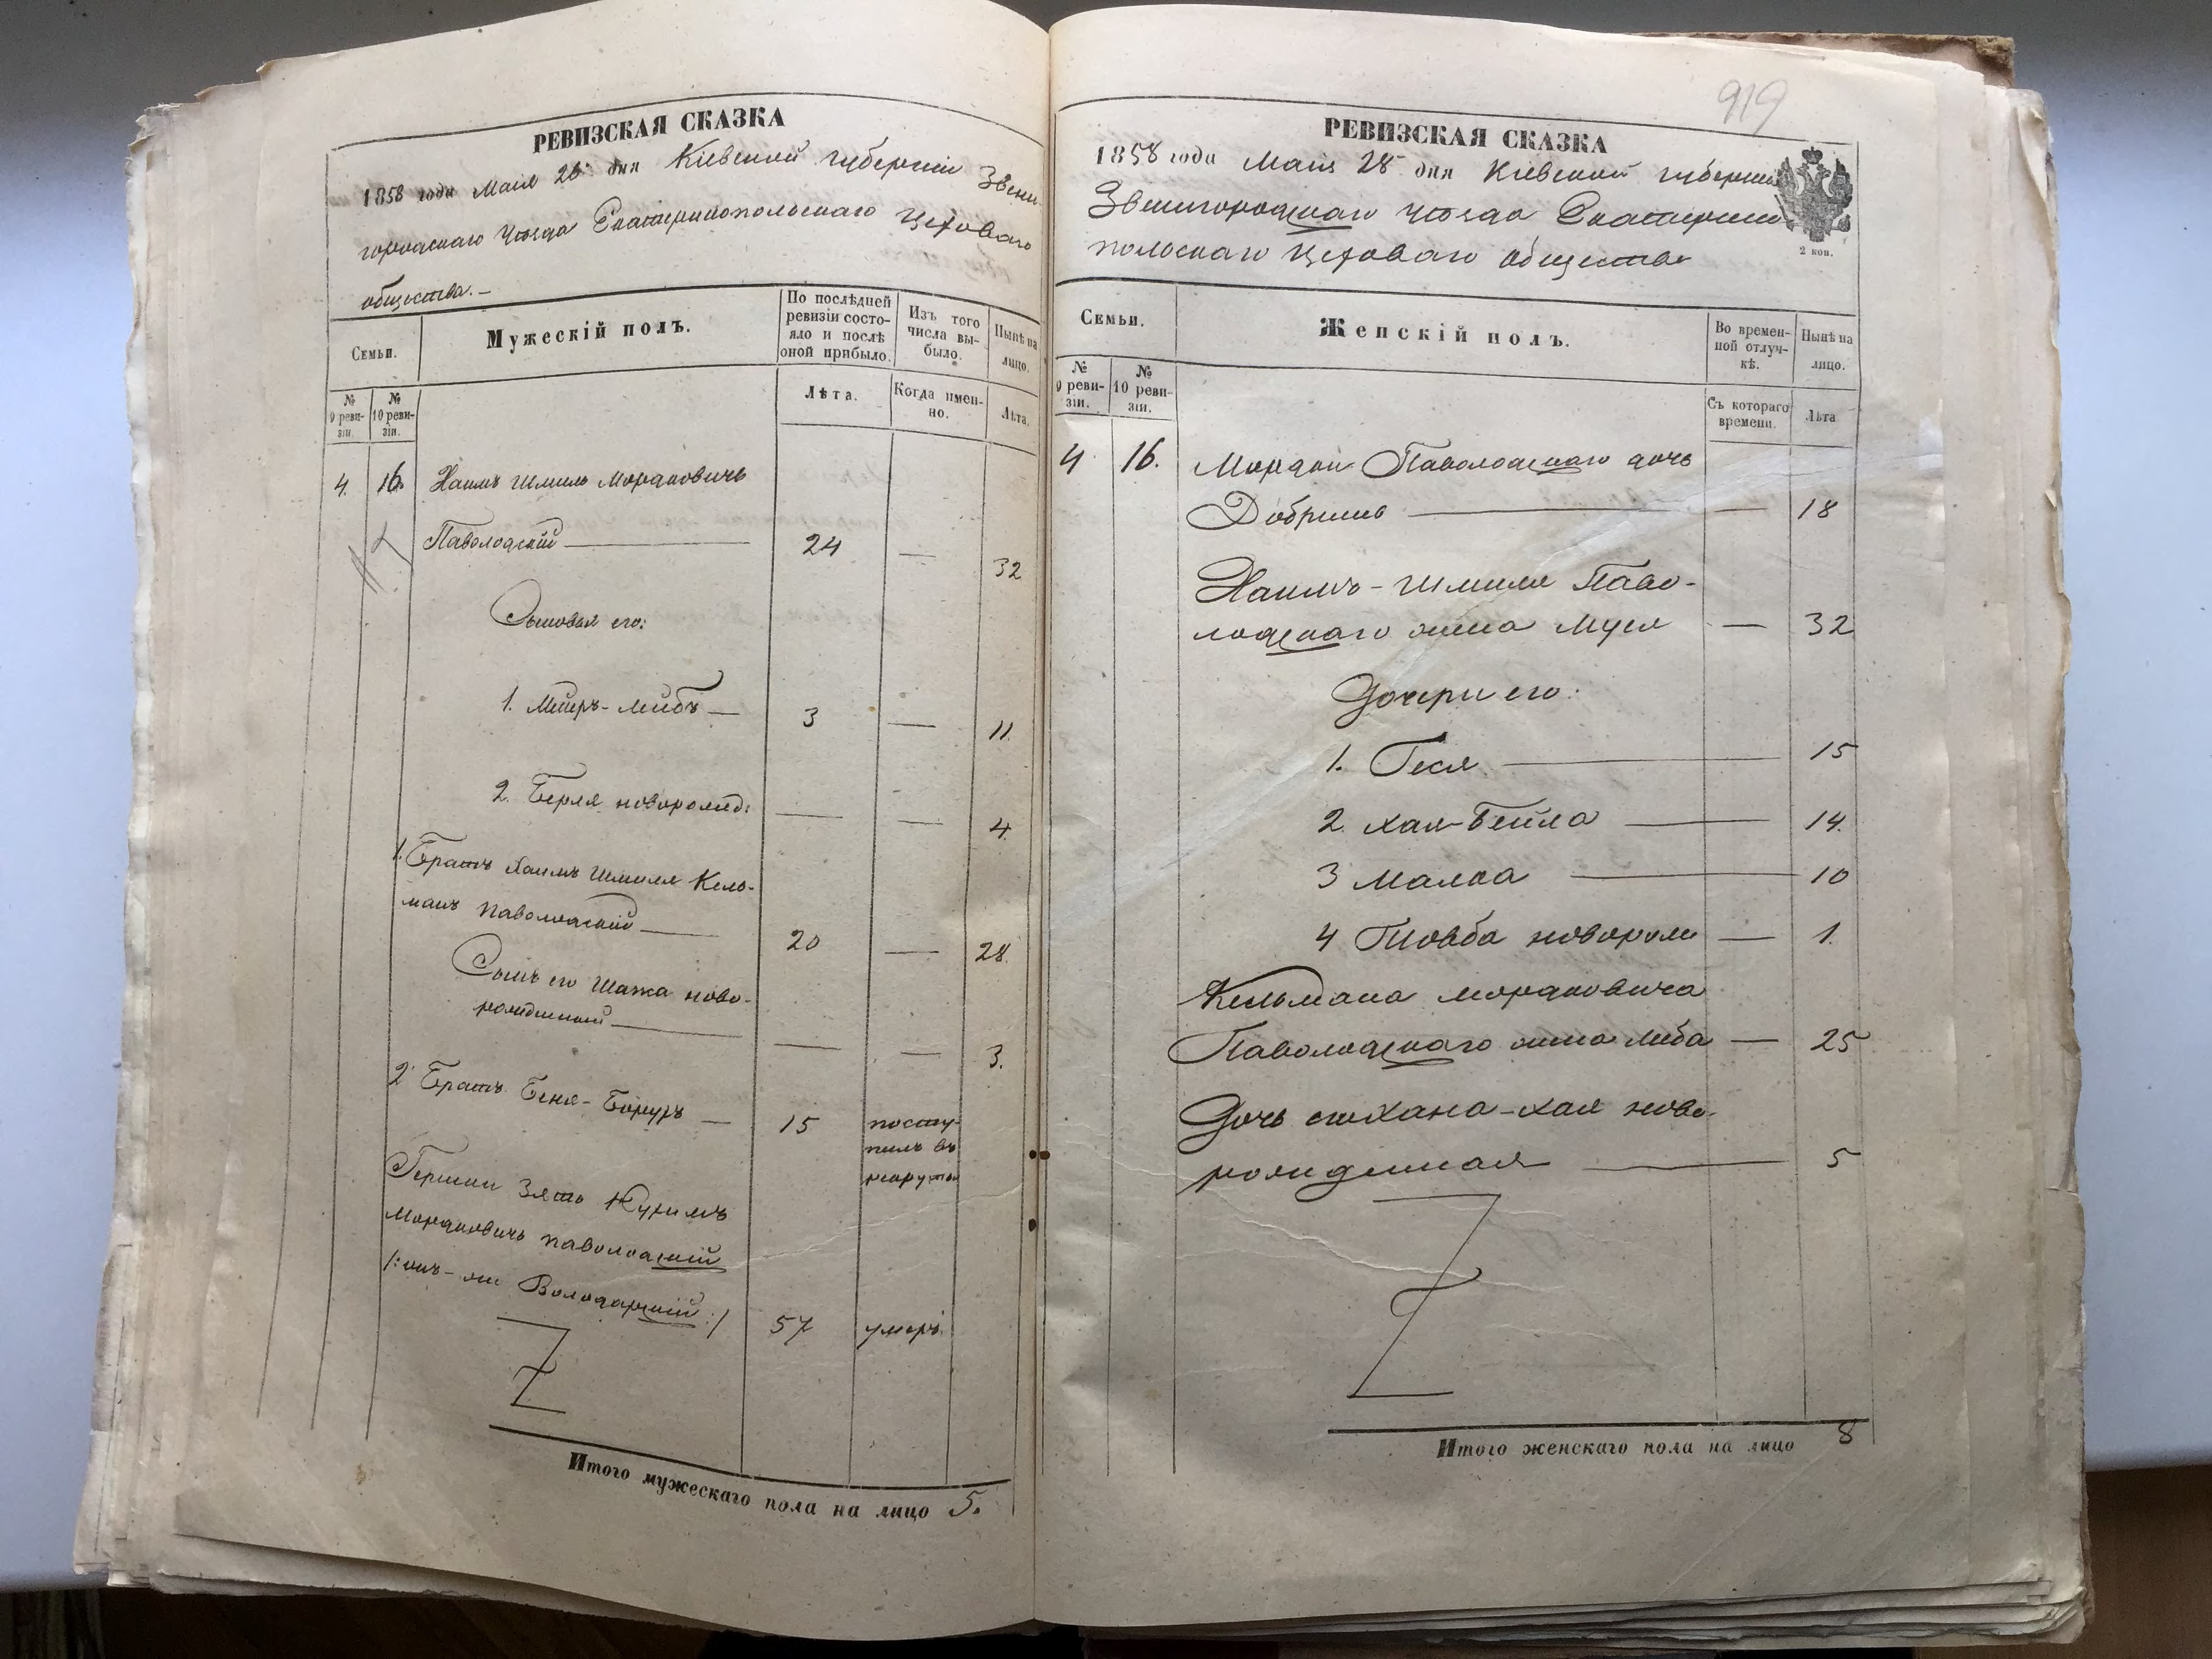 РЕВИЗСКАЯ СКАЗКА
1858 года Маія 28 дня Кіевской губерніи Звени-
городскаго Уѣзда Екатеринопольскаго Цеховаго
общества.—
Семьи.
Мужескій полъ.
По послѣдней
ревизіи состо-
яло и послѣ
оной прибыло.
Изъ того
числа вы-
было.
Нынѣ на
лицо.
№
9 реви-
зіи.
№
10 реви-
зіи.
Лѣта.
Когда имен-
но.
Лѣта.
4. 16. Хаимъ Шмиль Мордковичъ
Паволоцкій — 24 — 32
Сыновья его:
1. Мейеръ-Лейбъ — 3 — 11.
2. Берля новорожд: — — 4.
1. Братъ Хаимъ Шмиля Кель-
манъ Паволоцкій — 20 — 28.
Сынъ его Шажа ново-
рожденный — — — 3.
2. Братъ Беня-Борухъ — 15 посту-
пилъ въ
рекруты
Гершки Зять Нухимъ
Мордковичъ Паволоцкій
/:онъ-же Володарскій:/ 57 умеръ.
Итого мужескаго пола на лицо 5.
919
РЕВИЗСКАЯ СКАЗКА
1858 года Маія 28 дня Кіевской губерніи
Звенигородскаго Уѣзда Екатерино-
польскаго Цеховаго общества
2 коп.
Семьи.
Женскій полъ.
Во времен-
ной отлуч-
кѣ.
Нынѣ на
лицо.
№
9 реви-
зіи.
№
10 реви-
зіи.
Съ котораго
времени.
Лѣта
4. 16. Мордки Паволоцкаго дочь
Добришъ — — 18
Хаимъ-Шмиля Паво-
лоцкаго жена Муся — 32
Дочери его:
1. Геся — 15
2. Хая-Бейла — 14.
3 Малка — 10
4 Товба новорож — 1.
Кельмана Мордковича
Паволоцкаго жена Либа — 25
Дочь его Хана-Хая ново-
рожденная — 5
Итого женскаго пола на лицо 8